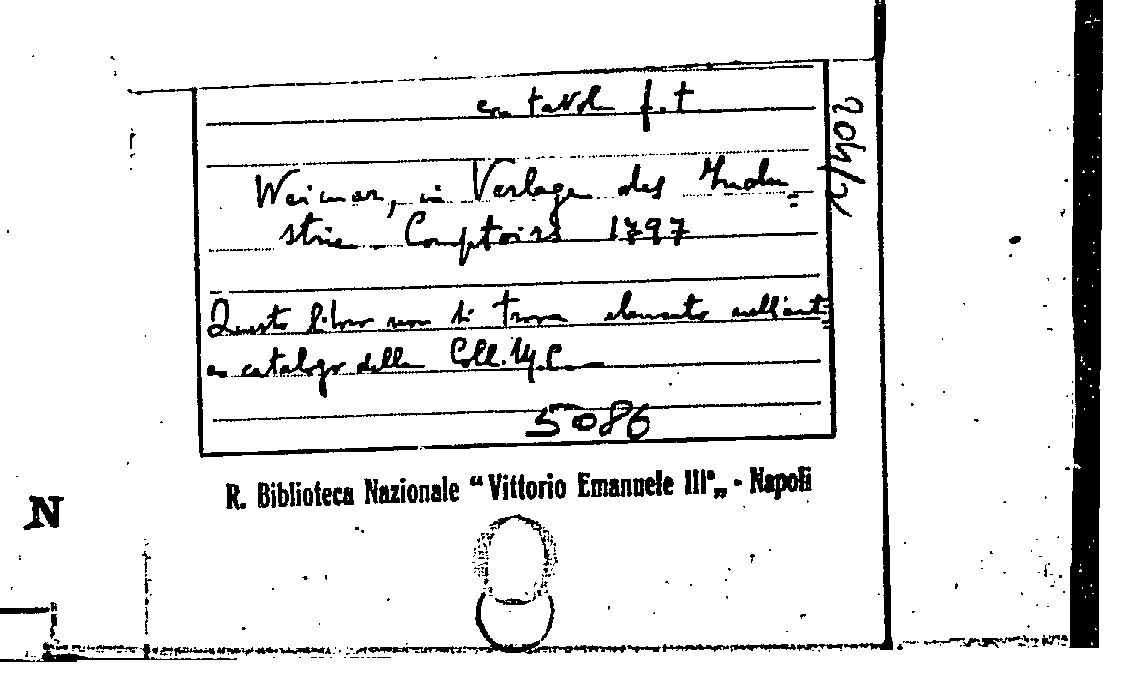 con tavole f. t
Weimar, in Verlage des Indu=
strie - Comptoirs 1797
Questo libro non si trova elencato nell'anti=
co catalogo della Coll. M. C.
5086
R. Biblioteca Nazionale “Vittorio Emanuele III°„ - Napoli
N